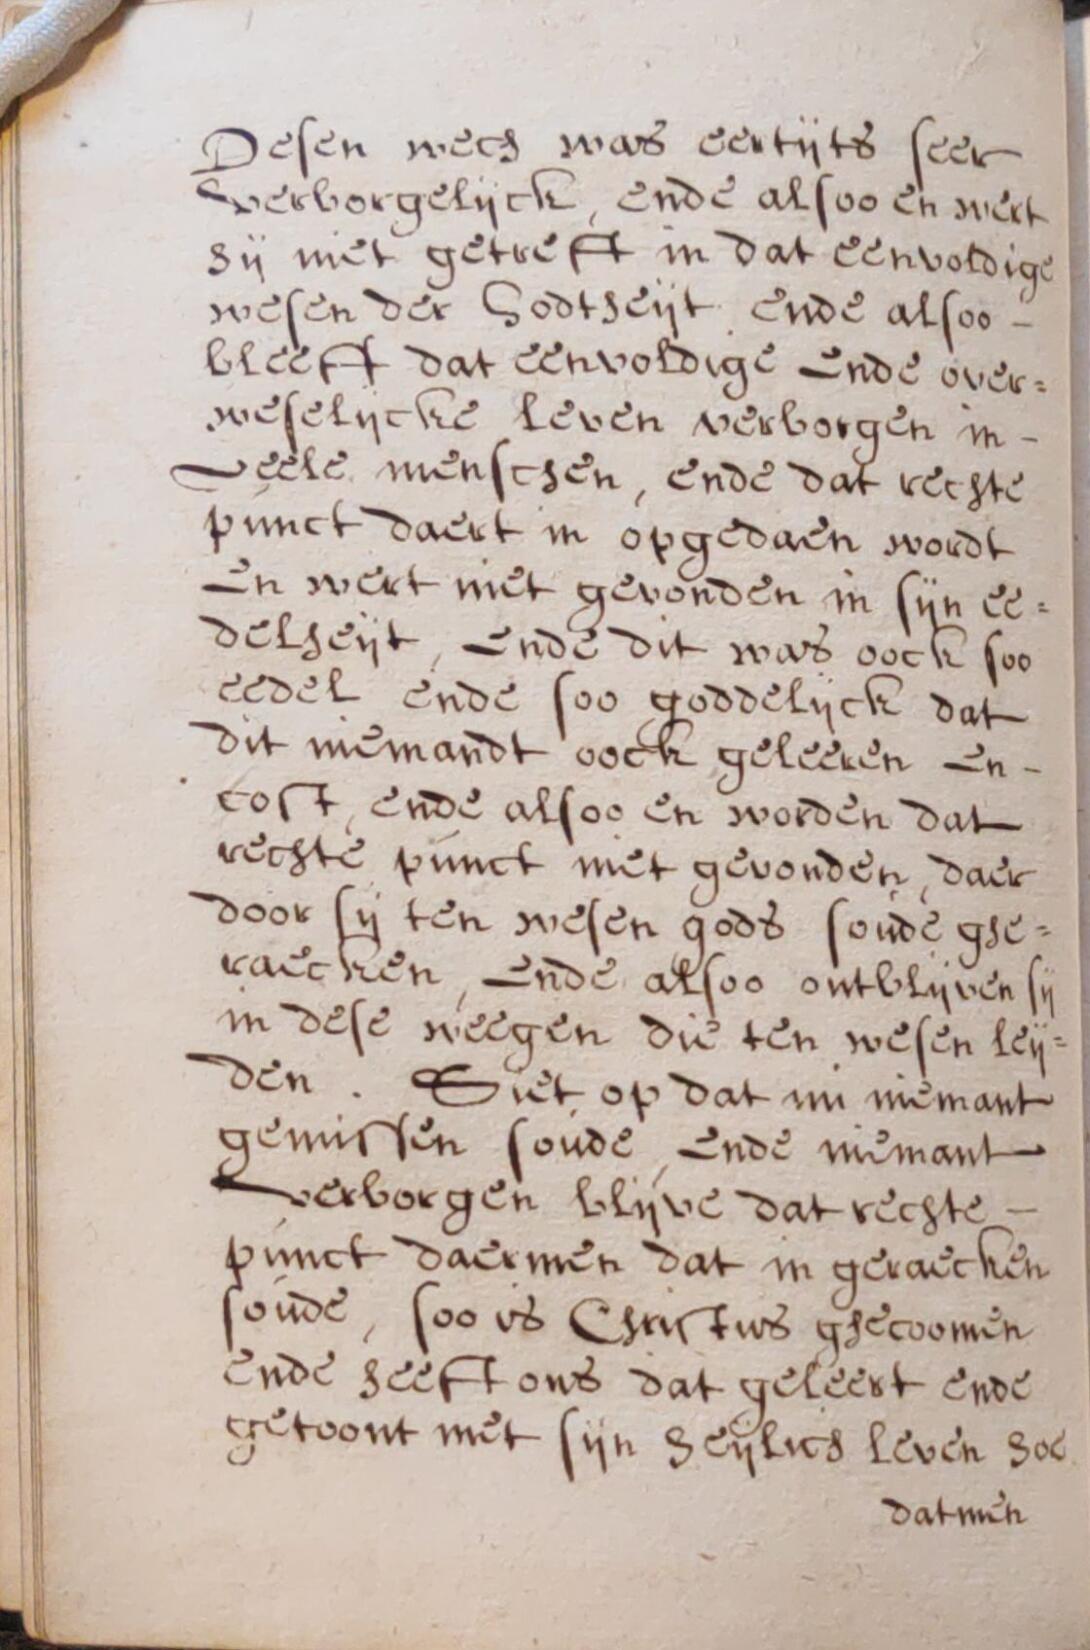 Desen wech was eertijts seer
verborgelijck, ende alsoo en wert
hij niet getreft in dat eenvoldige
wesen der Godtheijt ende alsoo -
bleeft dat eenvoldige ende over=
weselijcke leven verborgen in -
veele menschen, ende dat rechte
punct daert in opgedaen wordt
en wert niet gevonden in sijn ee=
delheijt, ende dit was oock soo
eedel ende soo goddelijck dat
dit niemandt oock geleeren en -
cost, ende alsoo en worden dat
rechte punct niet gevonden, daer
door sij ten wesen gods soude ghe=
raecken, ende alsoo ontblijven sij
in dese weegen die ten wesen leij=
den. Siet op dat nu niemant
gemissen soude, ende niemant
verborgen blijve dat rechte -
punct daermen dat in geraecken
soude, soo is Christus ghecoomen
ende heeft ons dat geleert ende
getoont met sijn heijlich leven hoe
datmen